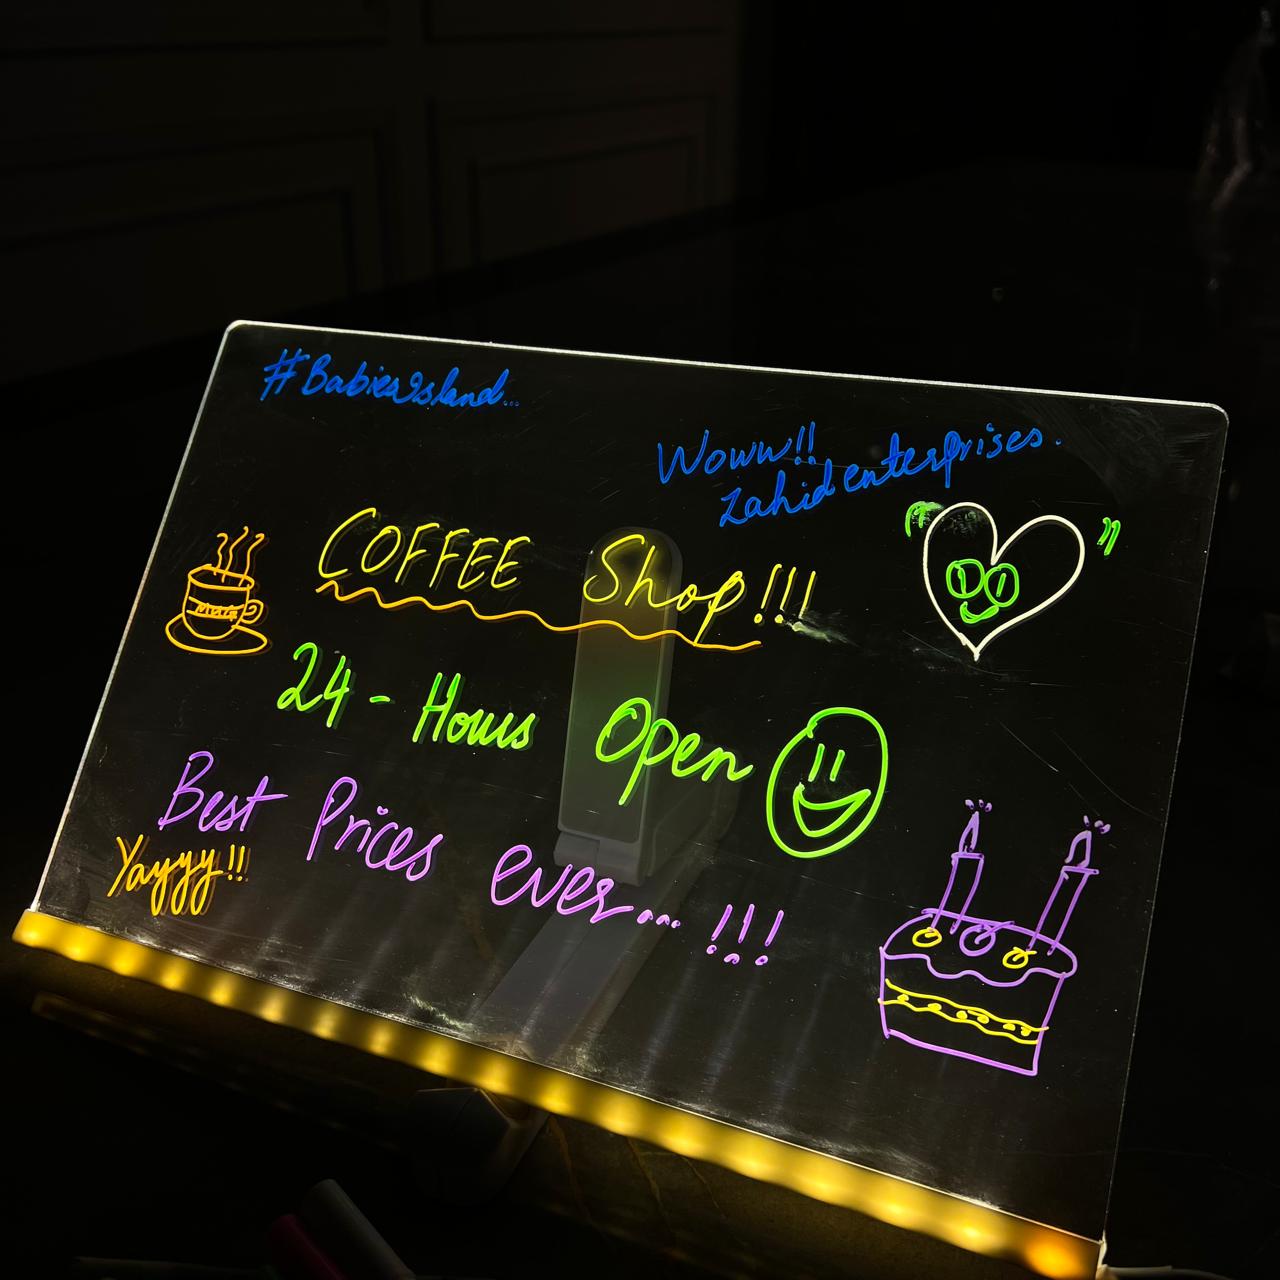 #BabiesIsland...
Woww!!
Zahid enterprises.
COFFEE Shop!!!
24 - Hours Open
Best Prices ever... !!!
Yayyy!!